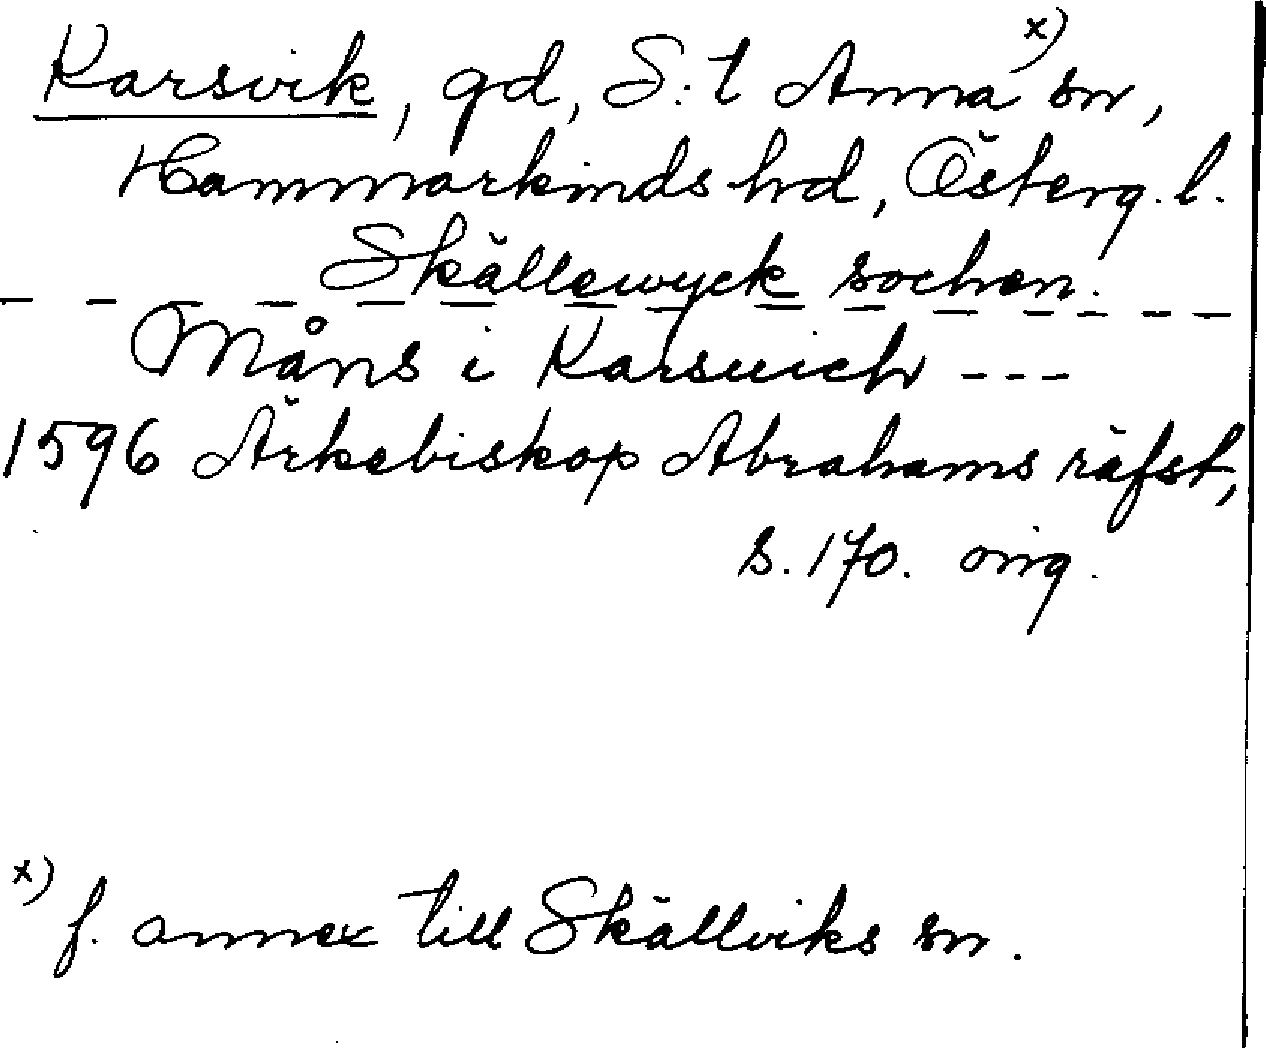 Karsvik, gd, S:t Anna x) sn,
Hammarkinds hd, Österg. l.
Skällewyck sochen.
Måns i Karsuich ---
1596 Ärkebiskop Abrahams räfst,
s. 170. orig.
x) f. annex till Skällviks sn.